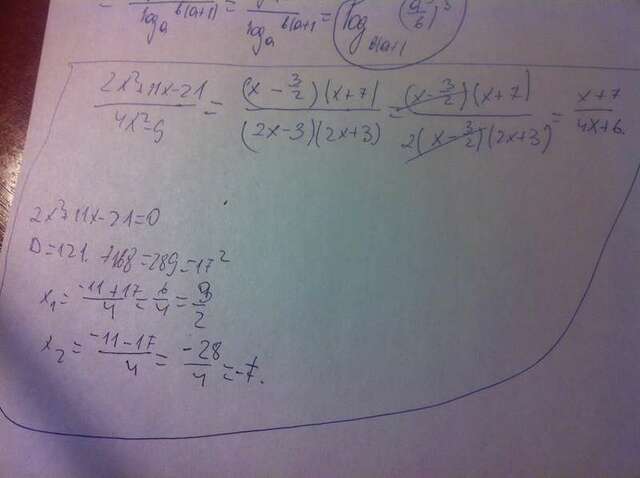 = / log_a 6(a+1) = / log_a 6(a+1) = log_6(a+1) (a/6)^3
(2x²+11x-21)/(4x²-9) = ((x - 3/2)(x+7))/((2x-3)(2x+3)) = ((x-3/2)(x+7))/(2(x-3/2)(2x+3)) = (x+7)/(4x+6).
2x²+11x-21=0
D=121. +168=289=17²
x₁= (-11+17)/4 = 6/4 = 3/2
x₂= (-11-17)/4 = -28/4 = -7.